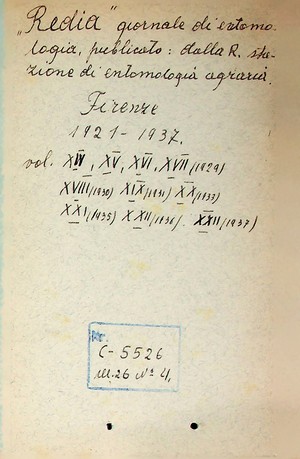 „Redia" giornale di entomo-
logia, publicato: dalla R. sta-
zione di entomologia agraria.
Firenze
1921-1937.
vol. XIV, XV, XVI, XVII (1929)
XVIII (1930) XIX (1931) XX (1933)
XXI (1935) XXII (1936) XXII (1937)
C-5526
Ш.26 № 4,